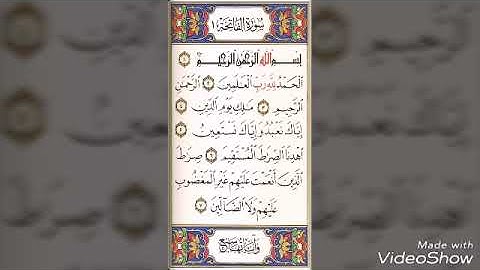 سُورَةُ الْفَاتِحَةِ ١
بِسْمِ اللَّهِ الرَّحْمَٰنِ الرَّحِيمِ ١
الْحَمْدُ لِلَّهِ رَبِّ الْعَالَمِينَ ٢ الرَّحْمَٰنِ
الرَّحِيمِ ٣ مَلِكِ يَوْمِ الدِّينِ ٤
إِيَّاكَ نَعْبُدُ وَإِيَّاكَ نَسْتَعِينُ ٥
اهْدِنَا الصِّرَاطَ الْمُسْتَقِيمَ ٦ صِرَاطَ
الَّذِينَ أَنْعَمْتَ عَلَيْهِمْ غَيْرِ الْمَغْضُوبِ
عَلَيْهِمْ وَلَا الضَّالِّينَ ٧
وَآيَاتُهَا سَبْعٌ
Made with
VideoShow